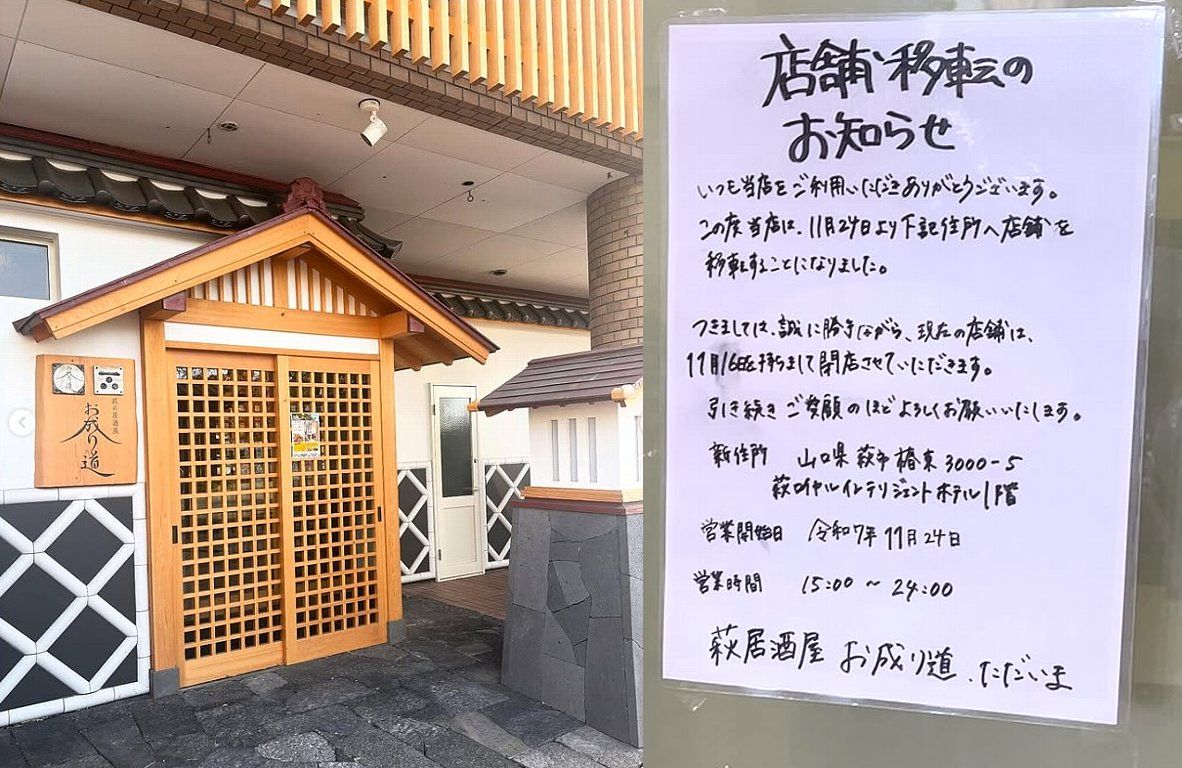 萩の居酒屋
お成り道
店舗移転の
お知らせ
いつも当店をご利用いただきありがとうございます。
この度当店は、11月24日より下記住所へ店舗を
移転することになりました。
つきましては、誠に勝手ながら、現在の店舗は、
11月16日を持ちまして閉店させていただきます。
引き続きご愛顧のほどよろしくお願いいたします。
新住所 山口県萩市椿東3000-5
萩ロイヤルインテリジェントホテル1階
営業開始日 令和7年11月24日
営業時間 15:00〜24:00
萩居酒屋 お成り道、ただいま